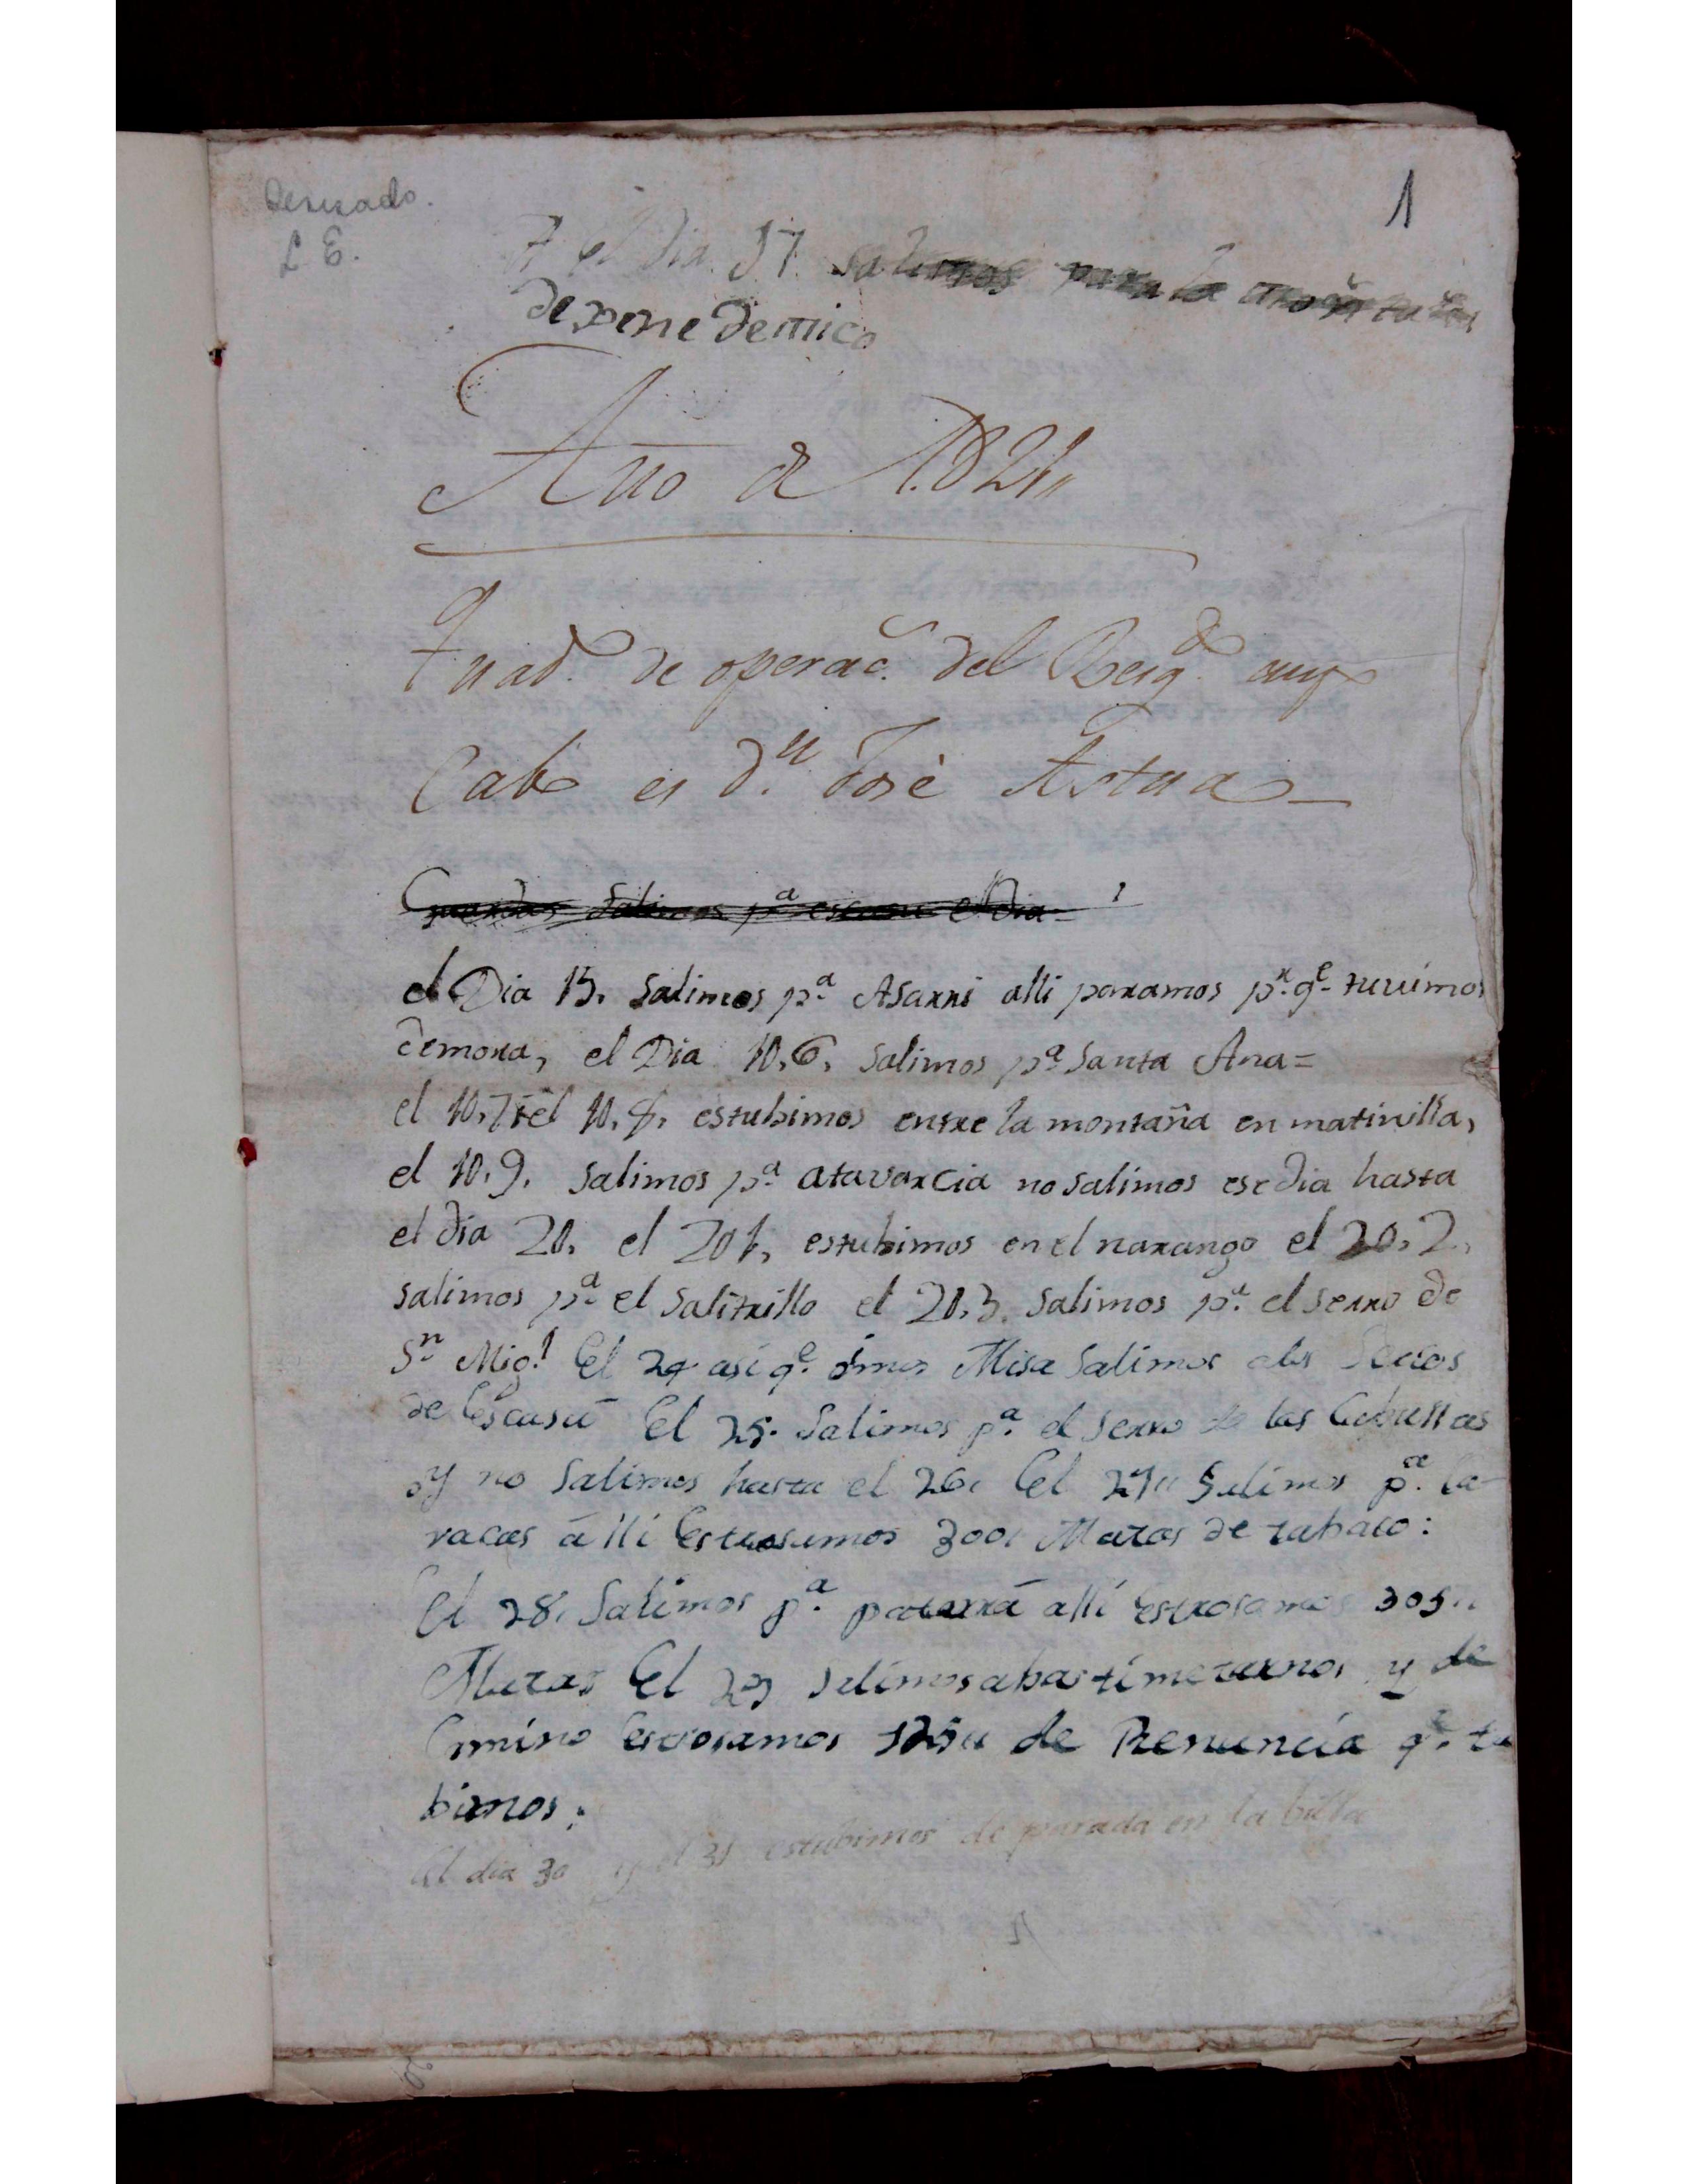 1
Revisado.
L E.
el Dia 17 salimos para la montaña
de pene de mico
Año d 1821,,
Quad.º de operac.s del Resg.do cuyo
Cabo es d.n José Astua
salimos p.a escasu el Dia
el Dia 15. salimos p.a Asarri alli paramos p.r q.e tuuimos
demora, el Dia 10,6, salimos p.a Santa Ana=
el 10,7, i el 10,8, estubimos entre la montaña en matinilla,
el 10.9. salimos p.a atavarcia no salimos ese dia hasta
el dia 20, el 201, estubimos en el narango el 20,2,
salimos p.a el salitrillo el 20,3. salimos p.a el serro de
S.n Mig.l El 24 asi q.e oimos Misa Salimos alos Serros
de Escasú El 25. Salimos p.a el serro de las
y no Salimos hasta el 26, El 27,, Salimos p.a la
vacas á lli Estrosamos 300, Matas de tabaco:
El 28, Salimos p.a patarrá allí estrosamos 305,,
Matas El 29 salimos y de
Camino Estrosamos 125,, de Renuncia q.e tu
bimos.
El dia 30 y el 31 estubimos de parada en la billa